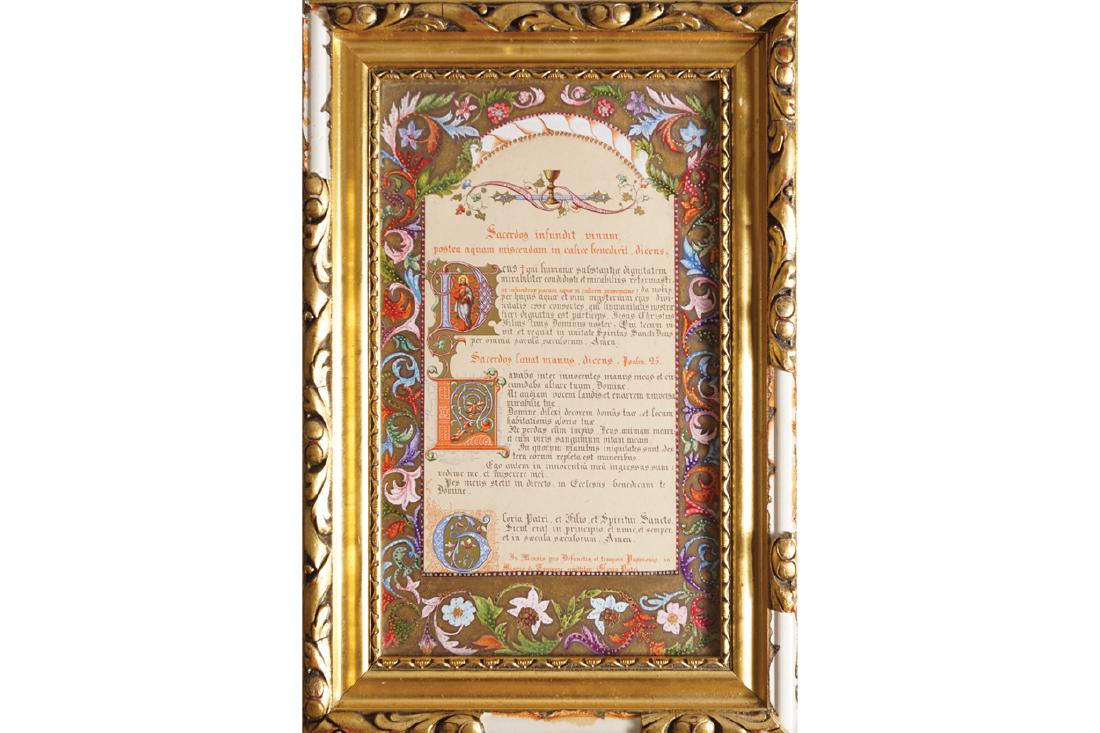 Sacerdos infundit vinum,
postea aquam miscendam in calice benedicit, dicens,
Deus † qui humanæ substantiæ dignitatem
mirabiliter condidisti et mirabilius reformasti:
da nobis
per hujus aquæ et vini mysterium ejus divi
nitatis esse consortes, qui humanitatis nostræ
fieri dignatus est particeps, Jesus Christus
Filius tuus Dominus noster: Qui tecum vi
vit et regnat in unitate Spiritus Sancti Deus
per omnia sæcula sæculorum. Amen.
Sacerdos lavat manus, dicens: Psalm 25.
Lavabo inter innocentes manus meas et cir
cumdabo altare tuum, Domine.
Ut audiam vocem laudis et enarrem universa
mirabilia tua
Domine dilexi decorem domûs tuæ, et locum
habitationis gloriæ tuæ
Ne perdas cum impiis Deus animam meam
et cum viris sanguinum vitam meam.
In quorum manibus iniquitates sunt dex
tera eorum repleta est muneribus.
Ego autem in innocentiâ meâ ingressus sum:
redime me, et miserere mei.
Pes meus stetit in directo, in Ecclesiis benedicam te
Domine.
Gloria Patri, et Filio, et Spiritui Sancto.
Sicut erat in principio, et nunc, et semper,
et in sæcula sæculorum. Amen.
In Missis pro Defunctis, et tempore Passionis, in
Gloria Patri